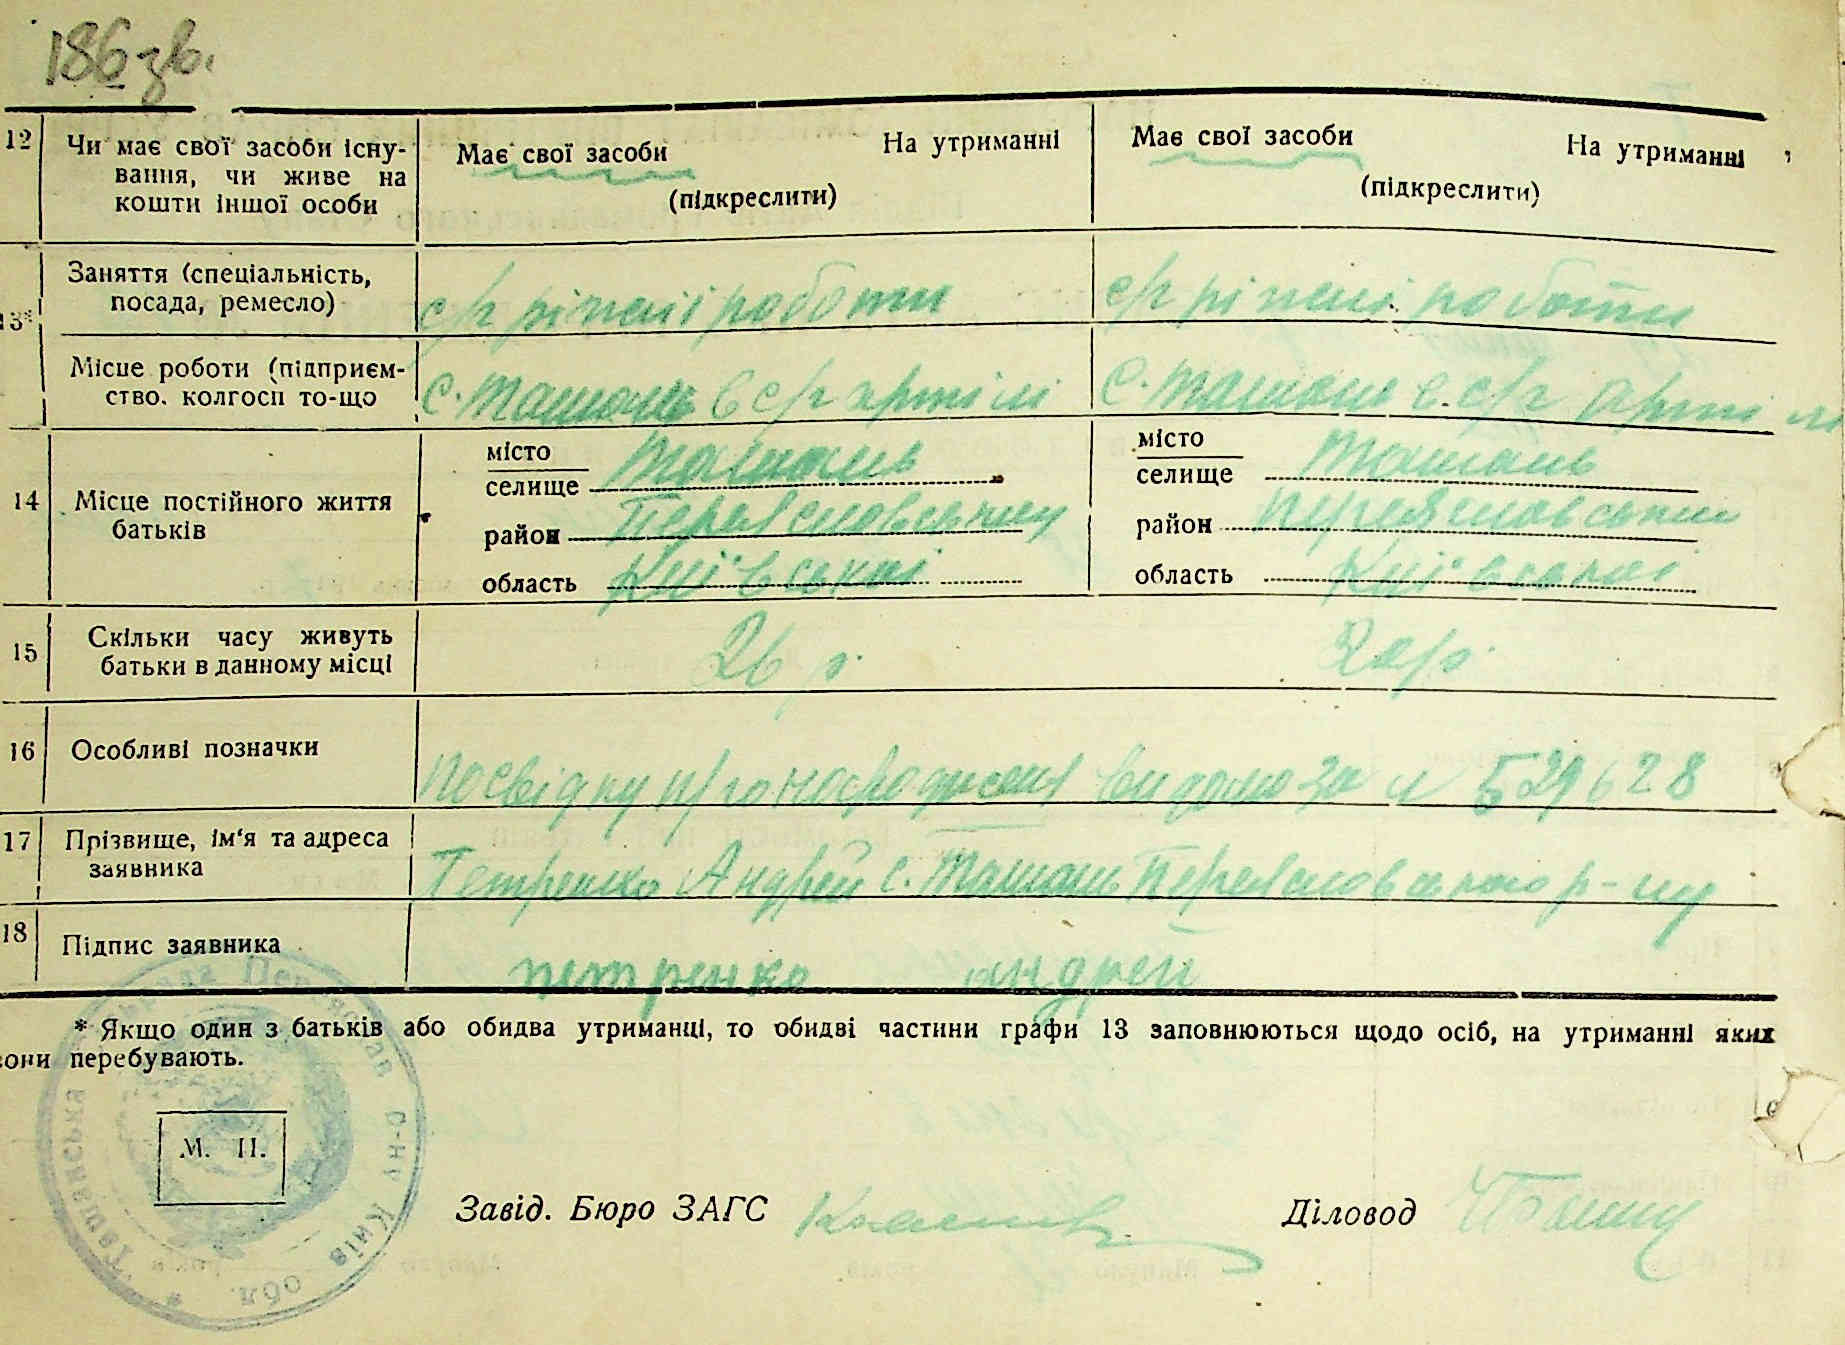 186 зв.
12 Чи має свої засоби існу-
вання, чи живе на
кошти іншої особи
Має свої засоби На утриманні
(підкреслити)
Має свої засоби На утриманні
(підкреслити)
13* Заняття (спеціальність,
посада, ремесло)
с/г ріжні роботи
с/г ріжні роботи
Місце роботи (підприєм-
ство, колгосп то-що
с. Ташань в с/г артілі
с. Ташань в с/г артілі
14 Місце постійного життя
батьків
місто
селище Ташань
район Переяславський
область Київської
місто
селище Ташань
район Переяславський
область Київської
15 Скільки часу живуть
батьки в данному місці
26 р.
20 р.
16 Особливі позначки
посвідку про народження видано за № 529628
17 Прізвище, ім'я та адреса
заявника
Петренко Андрей с. Ташань Переяславського р-ну
18 Підпис заявника
петренко андрей
* Якщо один з батьків або обидва утриманці, то обидві частини графи 13 заповнюються щодо осіб, на утриманні яких
вони перебувають.
М. П.
Ташанська рада Переяслав р-ну Київ обл.
Завід. Бюро ЗАГС
Діловод